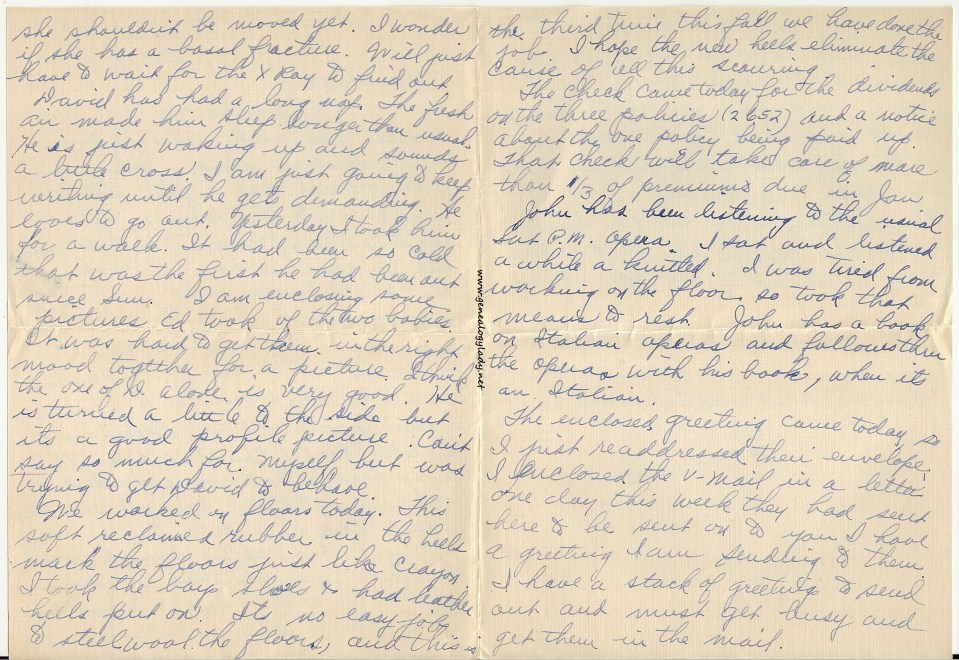 she shouldn't be moved yet. I wonder
if she has a basal fracture. Will just
have to wait for the X Ray to find out
David has had a long nap. The fresh
air made him sleep longer than usual.
He is just waking up and sounds
a little cross. I am just going to keep
writing until he gets demanding. He
loves to go out. Yesterday I took him
for a walk. It had been so cold
that was the first he had been out
since Sun. I am enclosing some
pictures Ed took of the two babies.
It was hard to get them in the right
mood together for a picture. I think
the one of D. alone is very good. He
is turned a little to the side but
its a good profile picture. Can't
say so much for myself but was
trying to get David to behave.
We worked on floors today. This
soft reclaimed rubber in the heels
mark the floors just like crayon.
I took the boys shoes & had leather
heels put on. Its no easy job
to steel wool the floors, and this is
the third time this fall we have done the
job. I hope the new heels eliminate the
cause of all this scouring.
The check came today for the dividends
on the three policies (2652) and a notice
about the one policy being paid up.
That check will take care of more
than 1/3 of premiums due in Jan
John has been listening to the usual
Sat P.M. opera. I sat and listened
a while a knitted. I was tired from
working on the floor so took that
means to rest. John has a book
on Italian operas and follows thru
the operas with his book, when its
an Italian.
The enclosed greeting came today so
I just readdressed their envelope.
I enclosed the V-Mail in a letter
one day this week they had sent
here to be sent on to you I have
a greeting I am sending to them
I have a stack of greetings to send
out and must get busy and
get them in the mail.
www.genealogylady.net